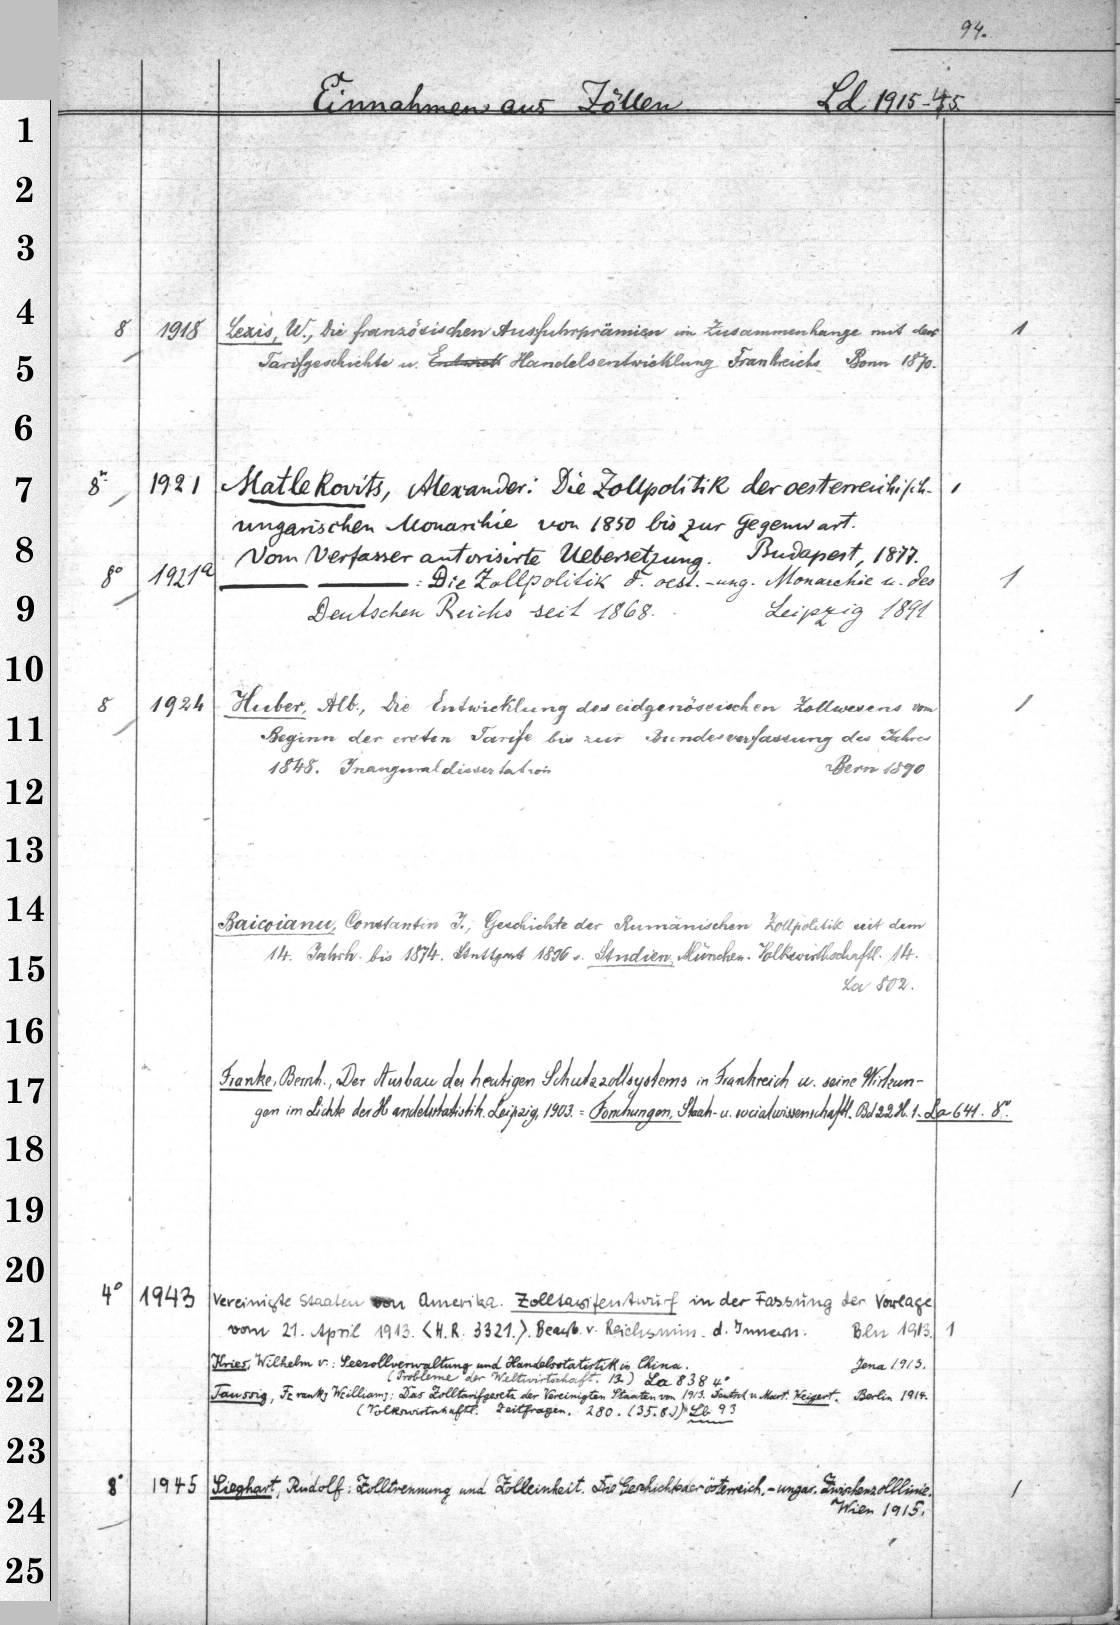 94.
Einnahmen aus Zöllen Ld 1915-45
1
2
3
4
8 1918 Lexis, W., Die französischen Ausfuhrprämien im Zusammenhange mit der 1
5
Tarifgeschichte u. Handelsentwicklung Frankreichs. Bonn 1870.
6
7
8° 1921 Matlekovits, Alexander: Die Zollpolitik der oesterreichisch- 1
ungarischen Monarchie von 1850 bis zur Gegenwart.
8
Vom Verfasser autorisirte Uebersetzung. Budapest, 1877.
8° 1921a : Die Zollpolitik d. oest.-ung. Monarchie u. des 1
9
Deutschen Reichs seit 1868. Leipzig 1891
10
8 1924 Huber, Alb., Die Entwicklung des eidgenössischen Zollwesens vom 1
11
Beginn der ersten Tarife bis zur Bundesverfassung des Jahres
1848. Inauguraldissertation Bern 1890
12
13
14
Baicoianu, Constantin I., Geschichte der Rumänischen Zollpolitik seit dem
14. Jahrh. bis 1874. Stuttgart 1896 s. Studien, München. Volkswirthschaftl. 14.
15
La 802.
16
17
Franke, Bernh., Der Ausbau des heutigen Schutzzollsystems in Frankreich u. seine Wirkun-
gen im Lichte der Handelsstatistik. Leipzig, 1903. = Forschungen, Staats- u. socialwissenschaftl. Bd 22 H. 1. La 641. 8°.
18
19
20
4° 1943 Vereinigte Staaten von Amerika. Zolltarifentwurf in der Fassung der Vorlage
21
vom 21. April 1913. <H.R. 3321.>. Bearb. v. Reichsmin. d. Innern. Bln 1913. 1
Kries, Wilhelm v.: Seezollverwaltung und Handelsstatistik in China. Jena 1913.
(Probleme der Weltwirtschaft. 13.) La 838 4°
22
Taussig, Frank William; Das Zolltarifgesetz der Vereinigten Staaten von 1913. u. Mart. Keipert. Berlin 1914.
(Volkswirtschaftl. Zeitfragen. 280. (35.8.)) Lb 93
23
8° 1945 Sieghart, Rudolf: Zolltrennung und Zolleinheit. Die Geschichte der österreich.-ungar. Zwischenzolllinie. 1
24
Wien 1915.
25